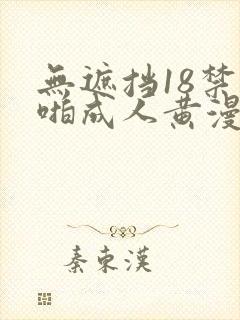 無遮挡18禁
啪成人黄漫
秦東漢